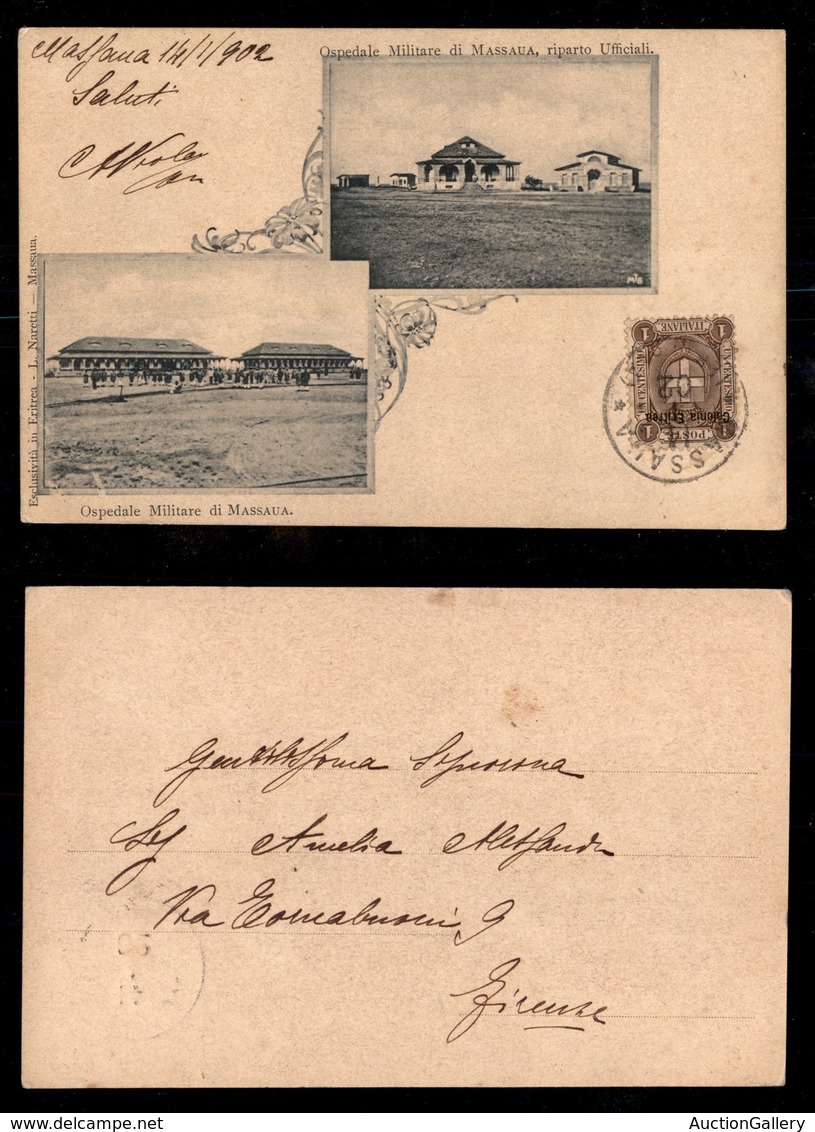 Massaua 14/1/902
Saluti
Ospedale Militare di MASSAUA, riparto Ufficiali.
MTB
Esclusività in Eritrea - L. Naretti — Massaua.
Ospedale Militare di MASSAUA.
1 POSTE ITALIANE 1
UN CENTESIMO
UN CENTESIMO
Colonia Eritrea
MASSAUA
Gentilissima Signorina
Amelia Alessandri
Via Tornabuoni, 9
Firenze
AuctionGallery